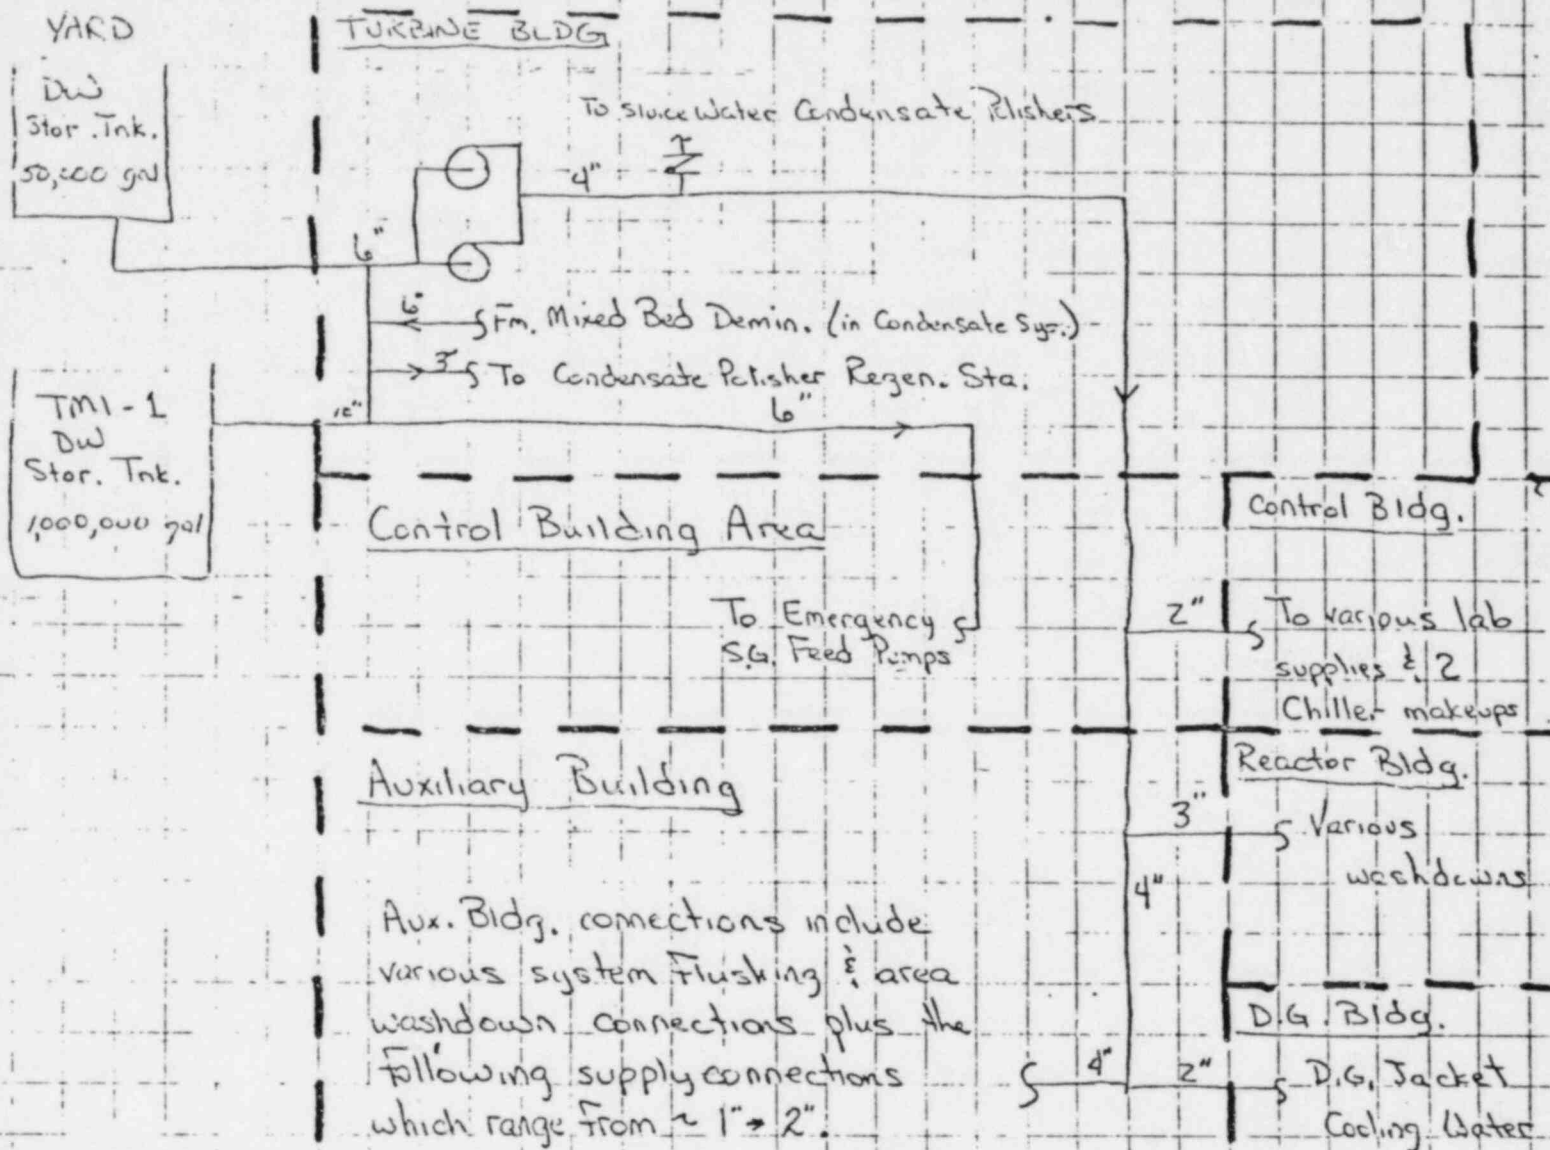 YARD
TURBINE BLDG
DW
Stor. Tnk.
50,000 gal
To sluice Water Condensate Polishers
4"
6"
6" Fm. Mixed Bed Demin. (in Condensate Sys.)
3" To Condensate Polisher Regen. Sta.
6"
TMI-1
DW
Stor. Tnk.
1,000,000 gal
Control Building Area
Control Bldg.
To Emergency
S.G. Feed Pumps
2"
To various lab
supplies & 2
Chiller makeups
Auxiliary Building
Reactor Bldg.
3"
Various
washdowns
4"
Aux. Bldg. connections include
various system Flushing & area
washdown connections plus the
Following supply connections
which range from ~ 1" → 2".
D.G. Bldg.
4"
2"
D.G. Jacket
Cooling Water